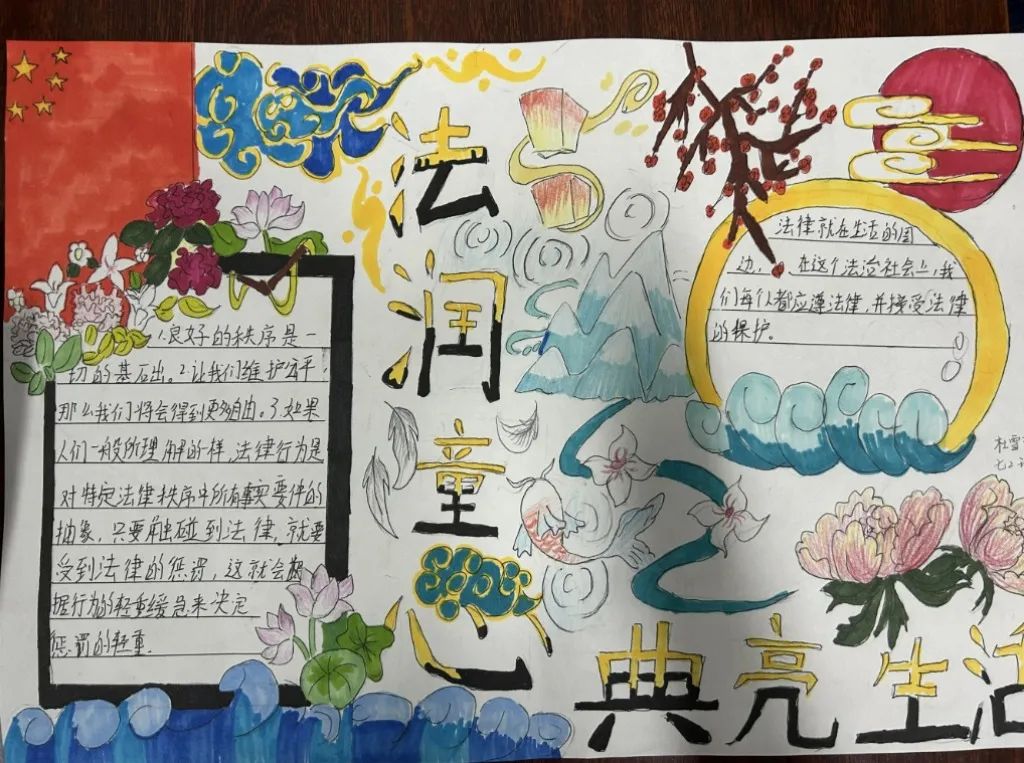 法润童心
1.良好的秩序是一
切的基础。2.让我们维护公平,
那么我们将会得到更多自由。3.如果
人们一般所理解的样,法律行为是
对特定法律秩序中所有事实要件的
抽象,只要触碰到法律,就要
受到法律的惩罚,这就会根
据行为的轻重缓急来决定
惩罚的轻重.
法律就在生活的周
边,在这个法治社会上,我
们每个人都应遵法律,并接受法律
的保护。
杜雪
七2
典亮生活